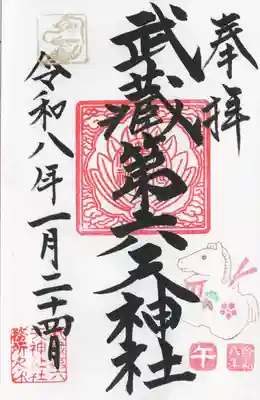 奉拝
武蔵第六天神社
令和八年一月二十四日
午